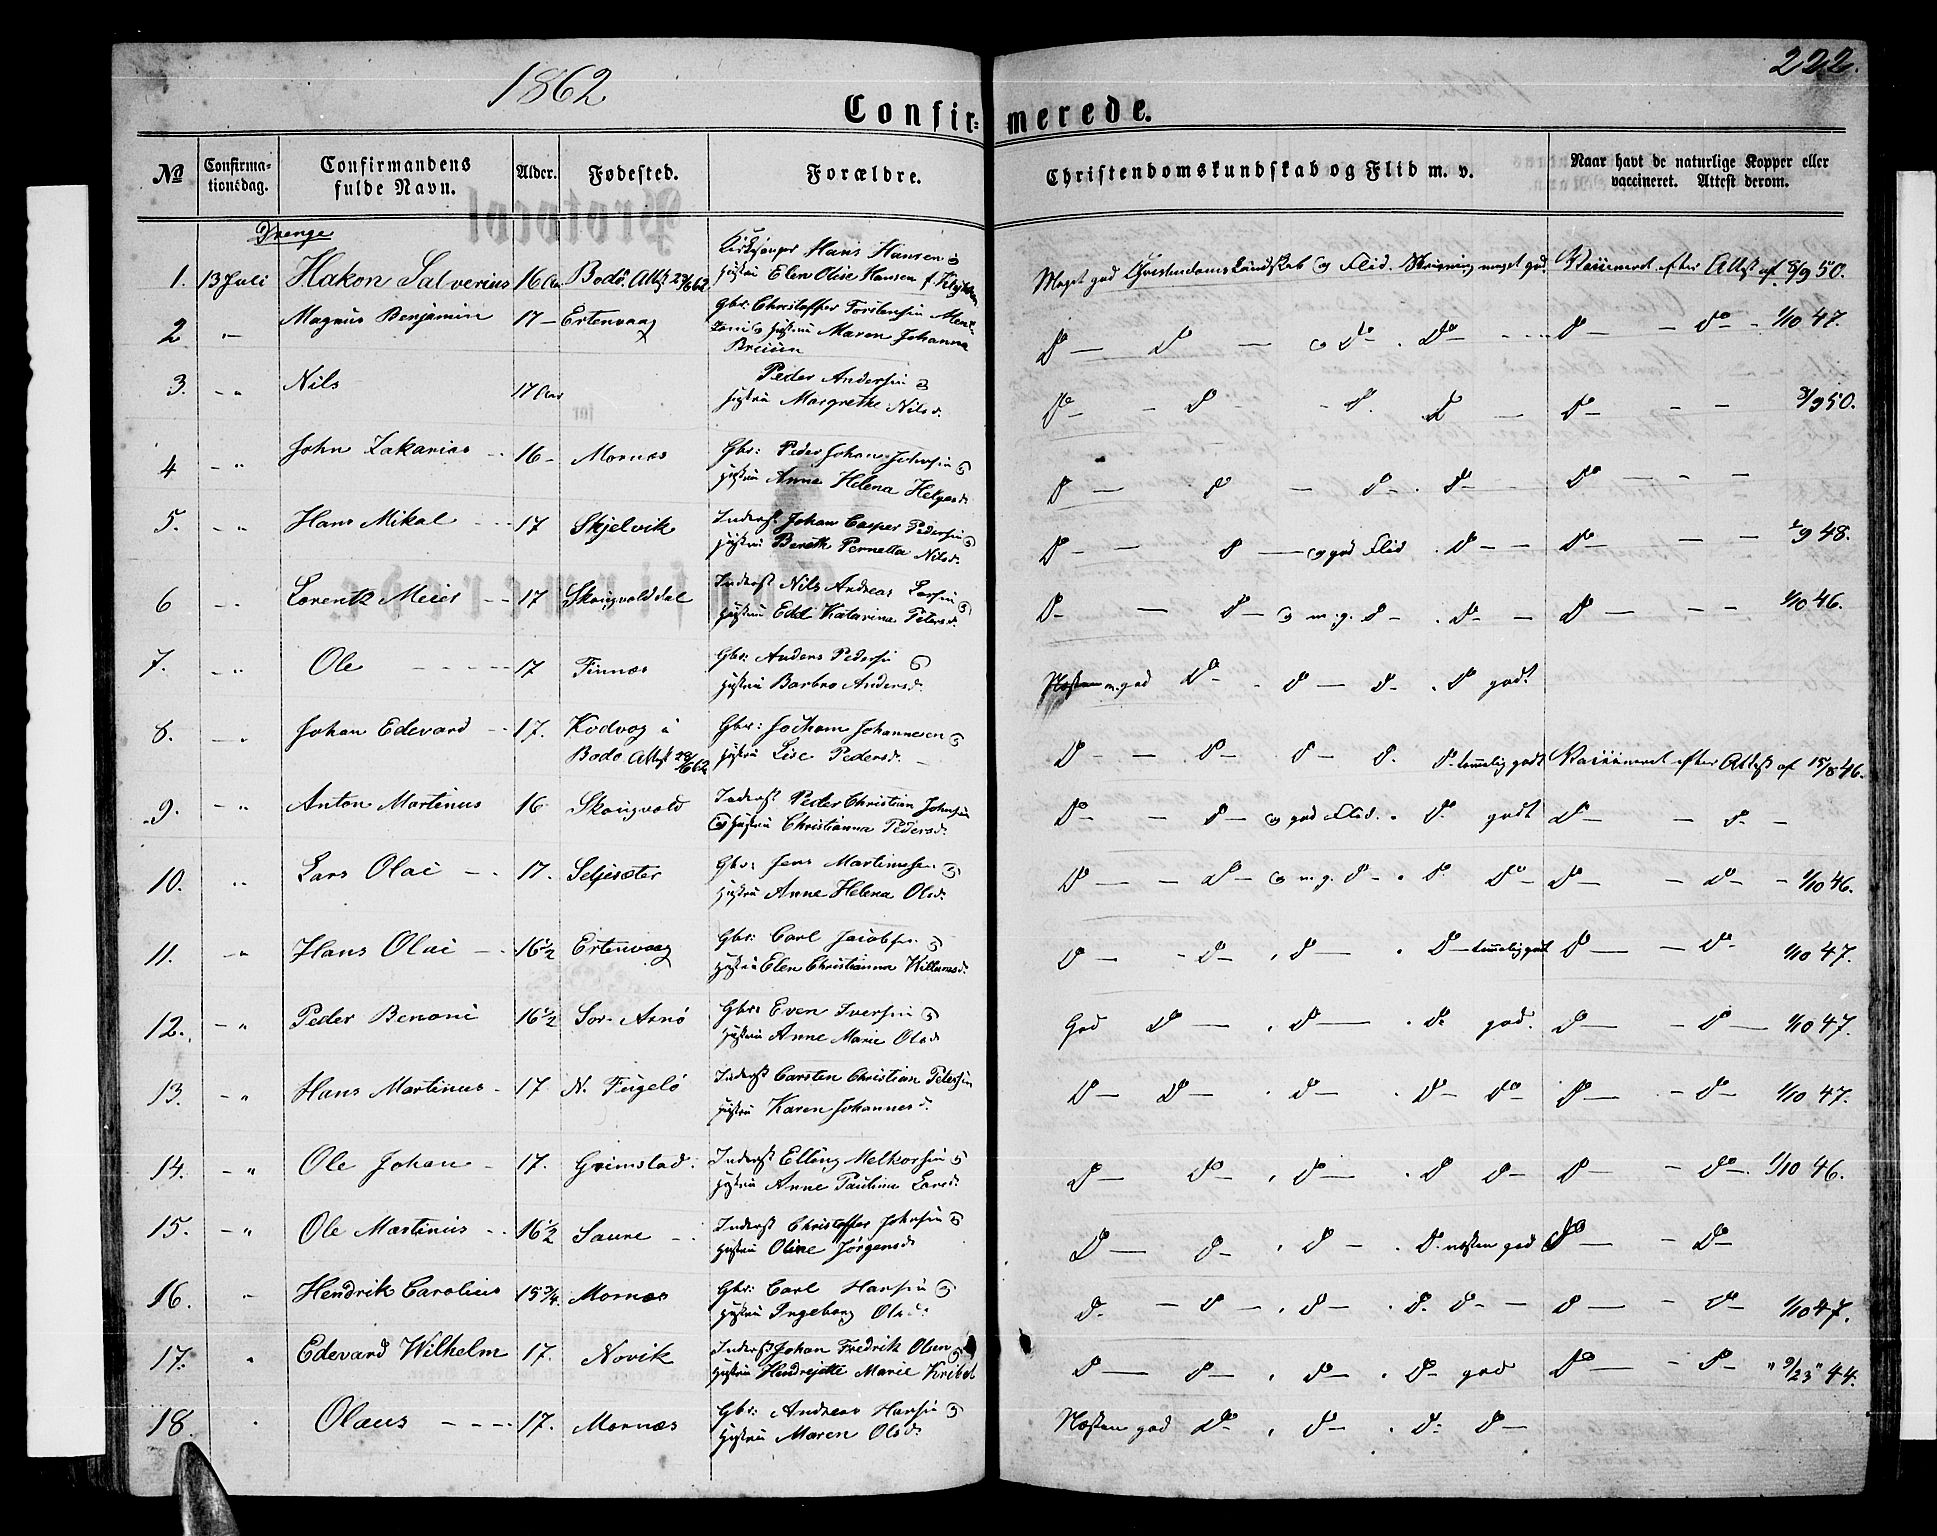 1862
222.
Confir= merede.
No
Confirma-
tionsdag.
Confirmandens
fulde Navn.
Alder.
Fødested.
Forældre.
Christendomskundskab og Flid m. v.
Naar havt de naturlige Kopper eller
vaccineret. Attest derom.
Drenge
1. 13 Juli Hakon Salverius 16 Aar Bodö. Attest 29/6 62. Kirkesanger Hans Hansen og
Hustru Elen Olise Hansen f.
Meget god Christendomskundskab og Flid. meget god. Vaccineret efter Attest af 8/9 50.
2 - Magnus Benjamin 17 - Ertenvaag Gbr: Christoffer Torstensen
Hustru Maren Johanna
Do - Do - og Do - . Do - Do - Do - 1/10 47.
3. - " Nils 17 Aar Peder Andersen og
Hustru Margrethe Nilsd.
Do - Do - Do Do Do - - 8/9 50.
4 - " John Zakarias 16 - Mornæs Gbr: Peder Johan Johnsen og
Hustru Anna Helena Helgesd.
Do - Do - Do - . Do - Do - - -
5. - " Hans Mikal 17 Skjelvik Inderst Johan Casper Pedersen og
Hustru Bereth Pernella Nilsd.
Do - Do - og god Flid . Do - - Do - - - 9 48.
6 - Lorentz Meier 17 Skougvolddal Inderst Nils Andreas Larsen og
Hustru Edel Katarina Petersd.
Do - Do - og m. g. Do - . Do - Do - - - 1/10 46.
7. - " Ole 17 Finnæs Gbr: Anders Pedersen og
Hustru Barbro Andersd.
Næsten m. god Do - . Do - Do - . Do godt
8. - " Johan Edevard 17. Kodvog i
Bodö Attest 29/6 62 Gbr: Jochom Johannesen og
Hustru Lise Pedersd.
Do - - Do - Do - Do. Do. temmelig godt Vaccineret efter Attest af 15/8 46.
9. - " Anton Martinus 16 Skougvold Inderst Peder Christian Johnsen
og Hustru Christianna Pedersd.
Do - Do - og god Flid. . Do. godt Do - - Do - -
10. " Lars Olai 17. Seljesæter Gbr: Jens Martinusen og
Hustru Anne Helena Olsd.
Do - - Do - og m. g. Do - . Do. Do - Do - - Do - - 1/10 46.
11. - " Hans Olai 16 1/2 Ertenvaag Gbr: Carl Jacobsen og
Hustru Elen Christianna Willumsd.
Do - - Do - . Do - . Do - temmelig godt Do - - Do - 1/10 47.
12. - " Peder Benoni 16 1/2 Sör-Arnö Gbr: Even Iversen og
Hustru Anne Marie Olsd.
God Do - . Do - . Do - god. Do - - Do - 1/10 47.
13. - " Hans Martinus 17 N. Fugelö Inderst Carsten Christian Petersen
Hustru Karen Johannesd.
Do - Do - . Do - . Do - Do - Do - - Do - 1/10 47.
14. - " Ole Johan 17. Grimstad. Inderst Elling Melkorsen og
Hustru Anne Paulina Larsd.
Do - Do - . Do - . Do Do - Do - - Do - . 1/10 46.
15. - " Ole Martinus 16 1/2 Saure Inderst Christoffer Johnsen og
Hustru Oline Jørgensd.
Do - Do - . Do - . Do. næsten god Do - - Do -
16. " Hendrik Carolius 15 3/4. Mornæs Gbr: Carl Hansen og
Hustru Ingeborg Olsd.
Do - - Do - . Do - . Do. Do - - Do - - Do - 1/10 47.
17. " Edevard Wilhelm 17. Novik Inderst Johan Fredrik Olsen og
Hustru Hendrijette Marie
Do - Do - . Do - . Do - god Do - - Do - " 9/23" 44.
18. Olaus 17. Mornæs Gbr: Andreas Hansen og
Hustru Maren Olsd.
Næsten god Do - . Do - . Do - Do -